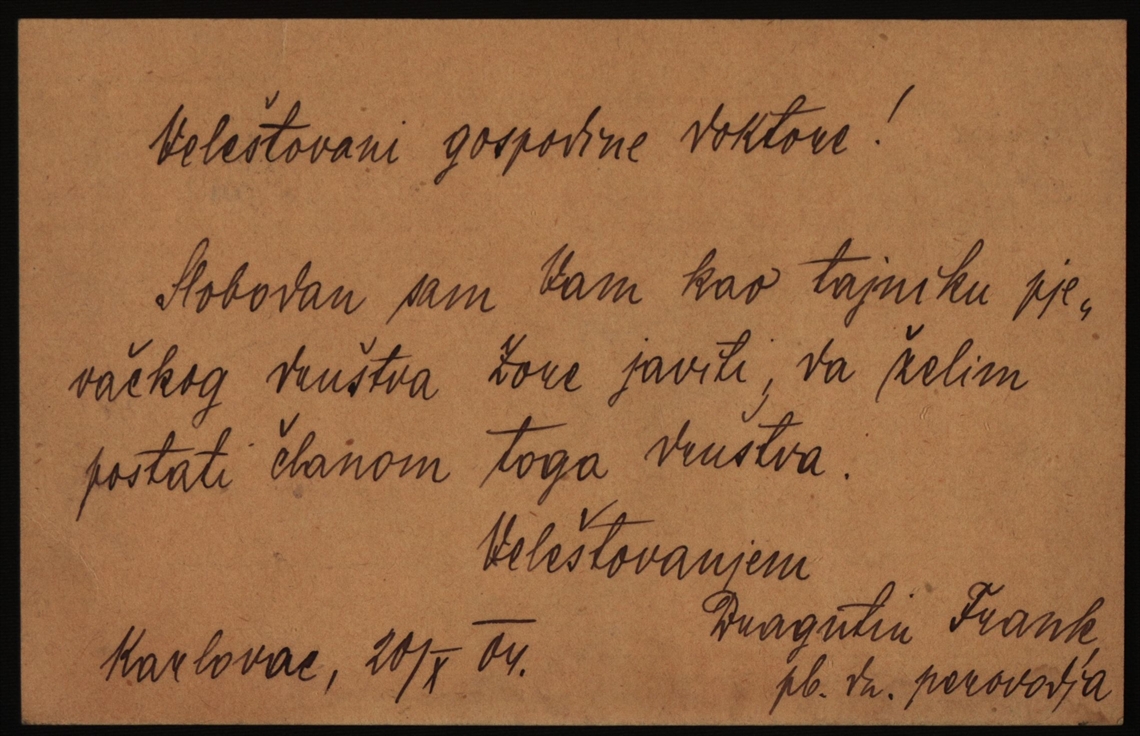 Velеštovani gospodine doktore!
Slobodan sam Vam kao tajniku pje„
vačkog društva Zore javiti, da želim
postati članom toga društva.
Velеštovanjem
Dragutin Frank,
Karlovac, 20/X 04. pb. dr. perovodja